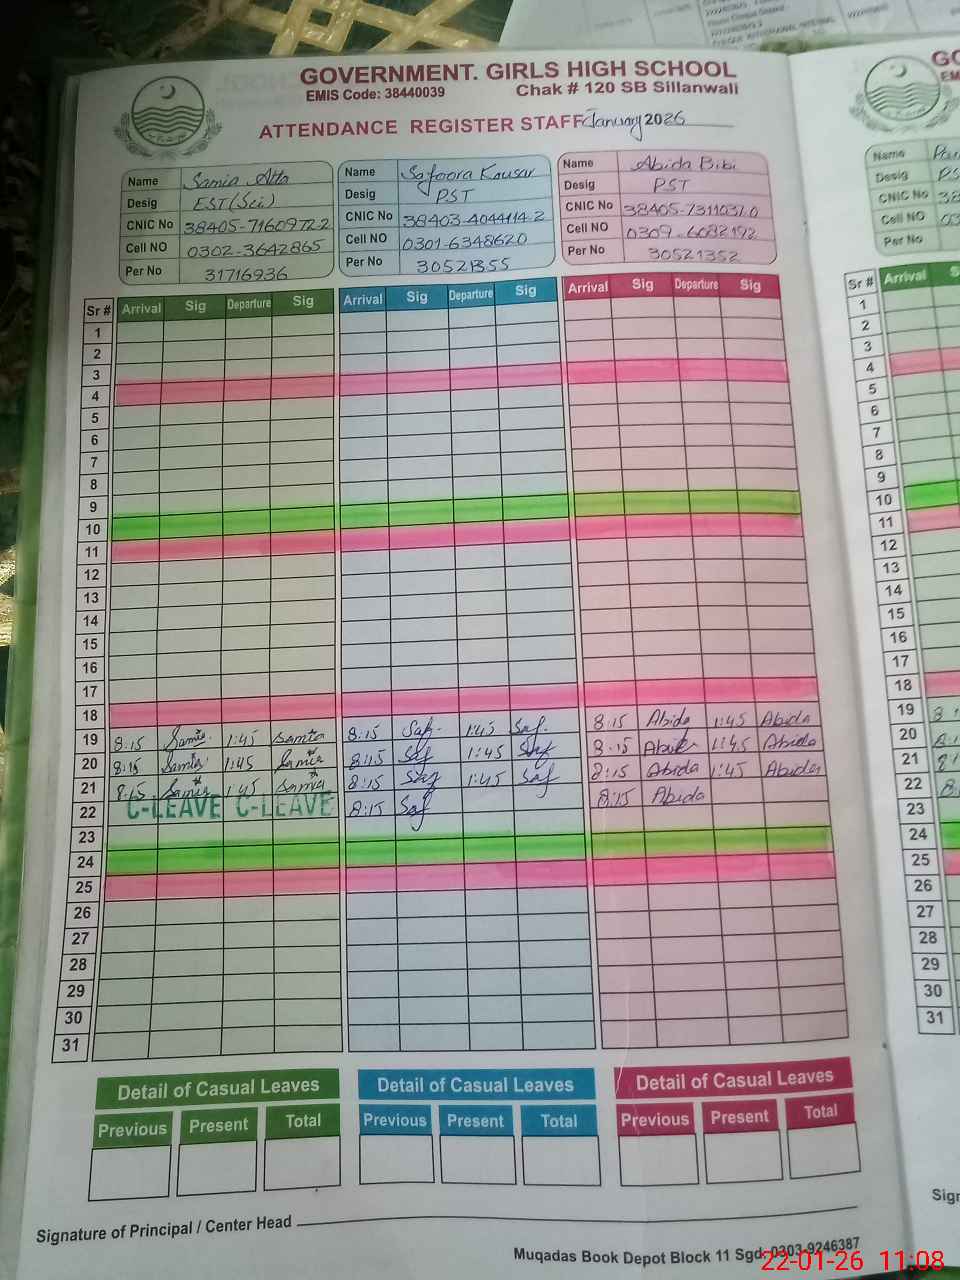 GOVERNMENT. GIRLS HIGH SCHOOL
EMIS Code: 38440039 Chak # 120 SB Sillanwali
ATTENDANCE REGISTER STAFF January 2026
Name Samia Atta Name Safoora Kousar Name Abida Bibi
Desig EST(Sci) Desig PST Desig PST
CNIC No 38405-7160972-2 CNIC No 38403-4044114-2 CNIC No 38405-7311037-0
Cell NO 0302-3642865 Cell NO 0301-6348620 Cell NO 0309-6082192
Per No 31716936 Per No 30521355 Per No 30521352
Sr # Arrival Sig Departure Sig Arrival Sig Departure Sig Arrival Sig Departure Sig
1
2
3
4
5
6
7
8
9
10
11
12
13
14
15
16
17
18
19 8:15 Samia 1:45 Samia 8:15 Saf 1:45 Saf 8:15 Abida 1:45 Abida
20 8:15 Samia 1:45 Samia 8:15 Saf 1:45 Saf 8:15 Abida 1:45 Abida
21 8:15 Samia 1:45 Samia 8:15 Saf 1:45 Saf 8:15 Abida 1:45 Abida
22 C-LEAVE C-LEAVE 8:15 Saf 8:15 Abida
23
24
25
26
27
28
29
30
31
Detail of Casual Leaves Detail of Casual Leaves Detail of Casual Leaves
Previous Present Total Previous Present Total Previous Present Total
Signature of Principal / Center Head
Muqadas Book Depot Block 11 Sgd: 0303-9246387
Name
Desig
CNIC No
Cell NO
Per No
Sr # Arrival
1
2
3
4
5
6
7
8
9
10
11
12
13
14
15
16
17
18
19
20
21
22
23
24
25
26
27
28
29
30
31
22-01-26 11:08